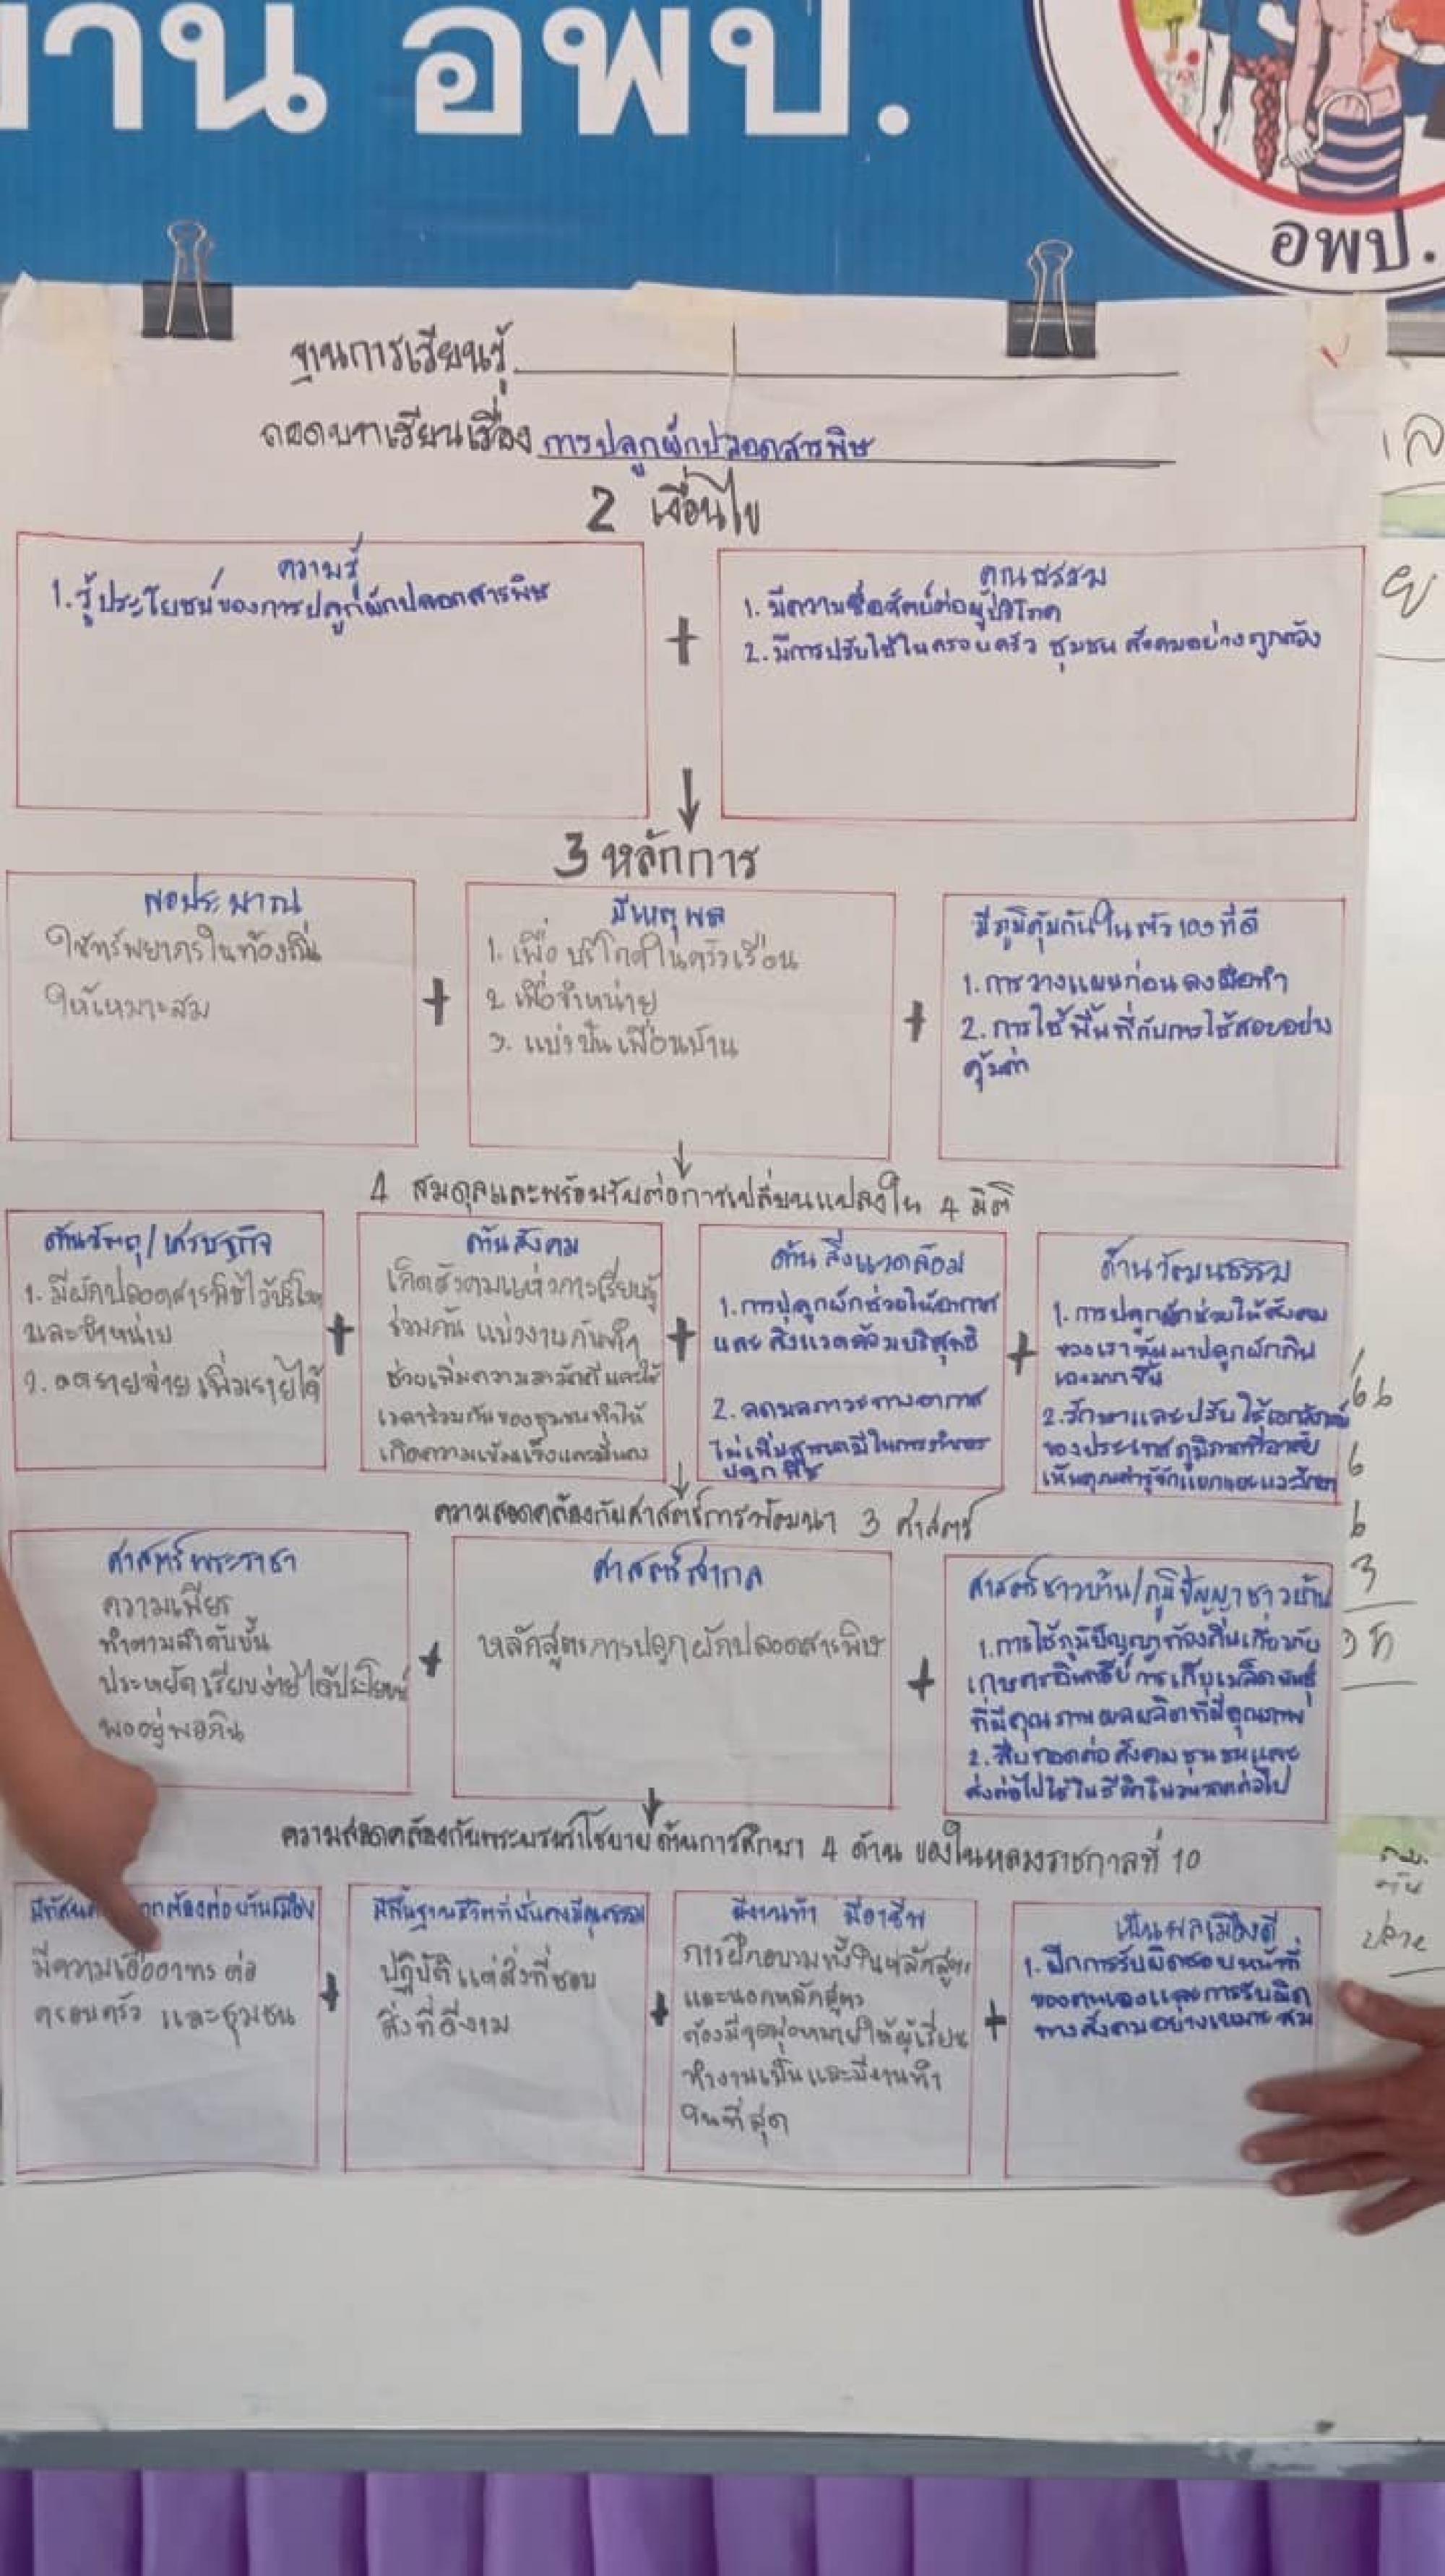 าน อพป.
อพป.
ฐานการเรียนรู้
ถอดบทเรียนเรื่อง การปลูกผักปลอดสารพิษ
2 เงื่อนไข
ความรู้
1. รู้ประโยชน์ของการปลูกผักปลอดสารพิษ
+
คุณธรรม
1. มีความซื่อสัตย์ต่อผู้บริโภค
2. มีการปรับใช้ในครอบครัว ชุมชน สังคมอย่างถูกต้อง
3 หลักการ
พอประมาณ
ใช้ทรัพยากรในท้องถิ่น
ให้เหมาะสม
+
มีเหตุผล
1. เพื่อบริโภคในครัวเรือน
2. เพื่อจำหน่าย
3. แบ่งปันเพื่อนบ้าน
+
มีภูมิคุ้มกันในตัวเองที่ดี
1. การวางแผนก่อนลงมือทำ
2. การใช้พื้นที่กับการใช้สอยอย่าง
คุ้มค่า
4 สมดุลและพร้อมรับต่อการเปลี่ยนแปลงใน 4 มิติ
ด้านวัตถุ/เศรษฐกิจ
1. มีผักปลอดสารพิษไว้บริโภค
และจำหน่าย
2. ลดรายจ่าย เพิ่มรายได้
+
ด้านสังคม
เกิดสังคมแห่งการเรียนรู้
ร่วมกัน แบ่งงานกันทำ
ช่วยเพิ่มความสามัคคีและใช้
เวลาร่วมกันของชุมชนทำให้
เกิดความเข้มแข็งและมั่นคง
+
ด้านสิ่งแวดล้อม
1. การปลูกผักช่วยให้อากาศ
และสิ่งแวดล้อมบริสุทธิ์
2. ลดมลภาวะทางอากาศ
ไม่เพิ่มสารเคมีในการ
ปลูกพืช
+
ด้านวัฒนธรรม
1. การปลูกผักช่วยให้สังคม
ของเราหันมาปลูกผักกิน
เองมากขึ้น
2. รักษาและปรับใช้เอกลักษณ์
ของประเทศ ภูมิภาคที่อาศัย
เห็นคุณค่ารู้จักแยกแยะ
ความสอดคล้องกับศาสตร์การพัฒนา 3 ศาสตร์
ศาสตร์พระราชา
ความเพียร
ทำตามลำดับขั้น
ประหยัด เรียบง่าย ได้ประโยชน์
พออยู่พอกิน
+
ศาสตร์สากล
หลักสูตรการปลูกผักปลอดสารพิษ
+
ศาสตร์ชาวบ้าน/ภูมิปัญญาชาวบ้าน
1. การใช้ภูมิปัญญาท้องถิ่นเกี่ยวกับ
เกษตรอินทรีย์ การเก็บเมล็ดพันธุ์
ที่มีคุณภาพ ผลผลิตที่มีคุณภาพ
2. สืบทอดต่อสังคม ชุมชนและ
ส่งต่อไปใช้ในชีวิต
ความสอดคล้องกับพระบรมราโชบาย ด้านการศึกษา 4 ด้าน ของในหลวงราชกาลที่ 10
มีทัศน ถูกต้องต่อบ้านเมือง
มีความเอื้ออาทร ต่อ
ครอบครัว และชุมชน
+
มีพื้นฐานชีวิตที่มั่นคงมีคุณธรรม
ปฏิบัติแต่สิ่งที่ชอบ
สิ่งที่ดีงาม
+
มีงานทำ มีอาชีพ
การฝึกอบรมทั้งในหลักสูตร
และนอกหลักสูตร
ต้องมีจุดมุ่งหมายให้ผู้เรียน
ทำงานเป็น และมีงานทำ
ในที่สุด
+
เป็นพลเมืองดี
1. ฝึกการรับผิดชอบหน้าที่
ของตนเองและการรับผิด
ทางสังคมอย่างเหมาะสม